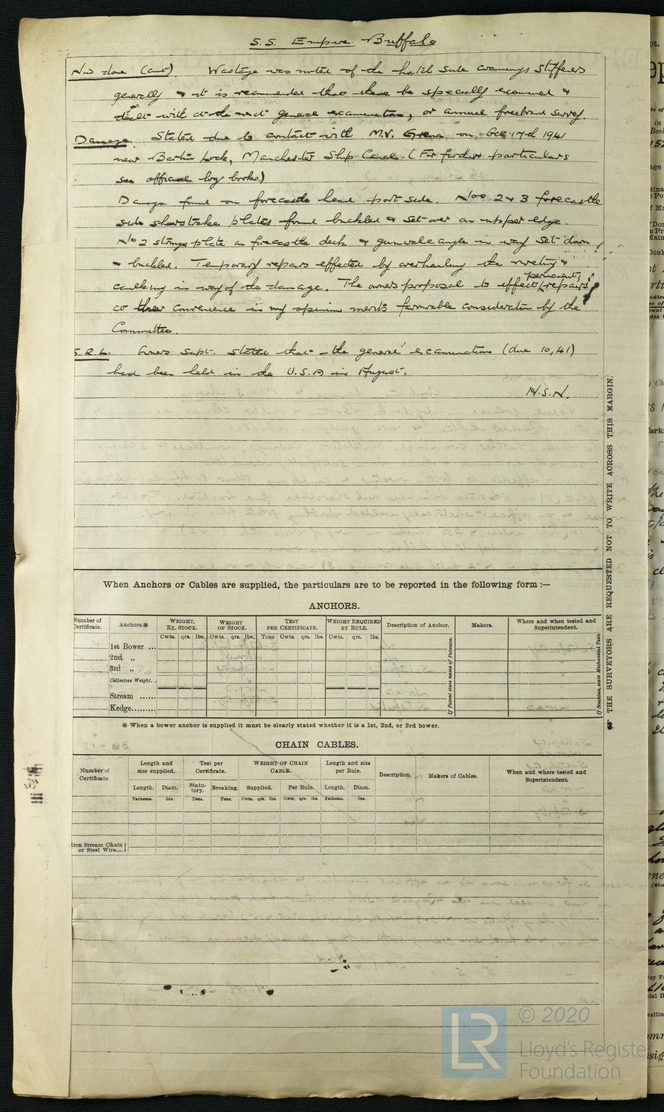 S.S. Empire Buffalo
Now done (cont). Wastage was noted of the hatch side coamings stiffeners
generally & it is recommended that these be specially examined &
dealt with at the next general examination, or annual freeboard survey
Damage Stated due to contact with M.V. on Oct 17th 1941
near Barton Lock, Manchester Ship Canal. (For further particulars
see official log books.)
Damage found on forecastle head port side. Nos 2 & 3 forecastle
side sheerstrake plates found buckled & set over on upper edge.
No 2 stringer plate on forecastle deck & gunwale angle in way set down
& buckled. Temporary repairs effected by overhauling the riveting &
caulking in way of the damage. The owners proposal to effect permanent repairs
at their convenience in my opinion merits favourable consideration by the
Committee.
S.R.L. Owners Supt. stated that the general examination (due 10,41)
had been held in the U.S.A in August.
H.S.N.
THE SURVEYORS ARE REQUESTED NOT TO WRITE ACROSS THIS MARGIN.
When Anchors or Cables are supplied, the particulars are to be reported in the following form :—
ANCHORS.
Number of Certificate. Anchors.* WEIGHT, EX. STOCK. WEIGHT OF STOCK. TEST PER CERTIFICATE. WEIGHT REQUIRED BY RULE. Description of Anchor. Makers. Where and when tested and Superintendent.
Cwts. qrs. lbs. Cwts. qrs. lbs. Tons Cwts. qrs. lbs. Cwts. qrs. lbs.
1st Bower ...
2nd „
3rd „
Collective Weight.
Stream ......
Kedge.........
If Patent state name of Patentee.
If Stockless, state Mechanical Tests.
* When a bower anchor is supplied it must be clearly stated whether it is a 1st, 2nd, or 3rd bower.
CHAIN CABLES.
Number of Certificate. Length and size supplied. Test per Certificate. WEIGHT OF CHAIN CABLE. Length and size per Rule. Description. Makers of Cables. When and where tested and Superintendent.
Length. Diam. Statutory. Breaking. Supplied. Per Rule. Length. Diam.
Fathoms. Ins. Tons. Tons. Cwts. qrs. lbs. Cwts. qrs. lbs. Fathoms. Ins.
Iron Stream Chain or Steel Wire
© 2020
LR
Lloyd's Register
Foundation